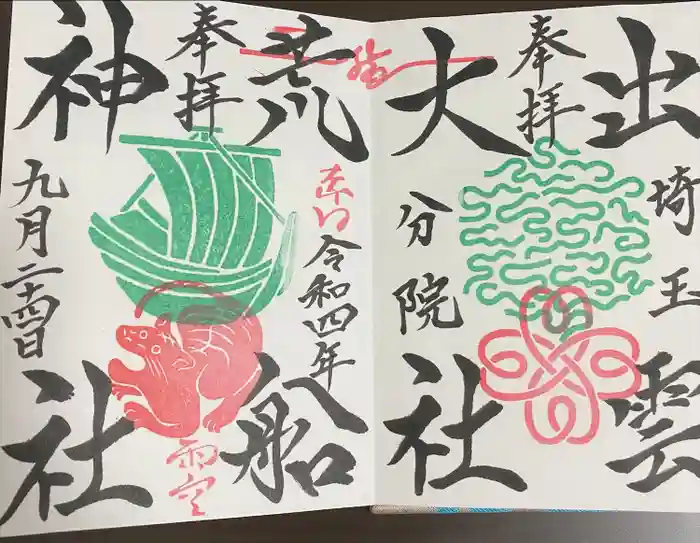 奉拝
出雲
大社
埼玉
分院
奉拝
荒船
神社
令和四年
九月二十四日